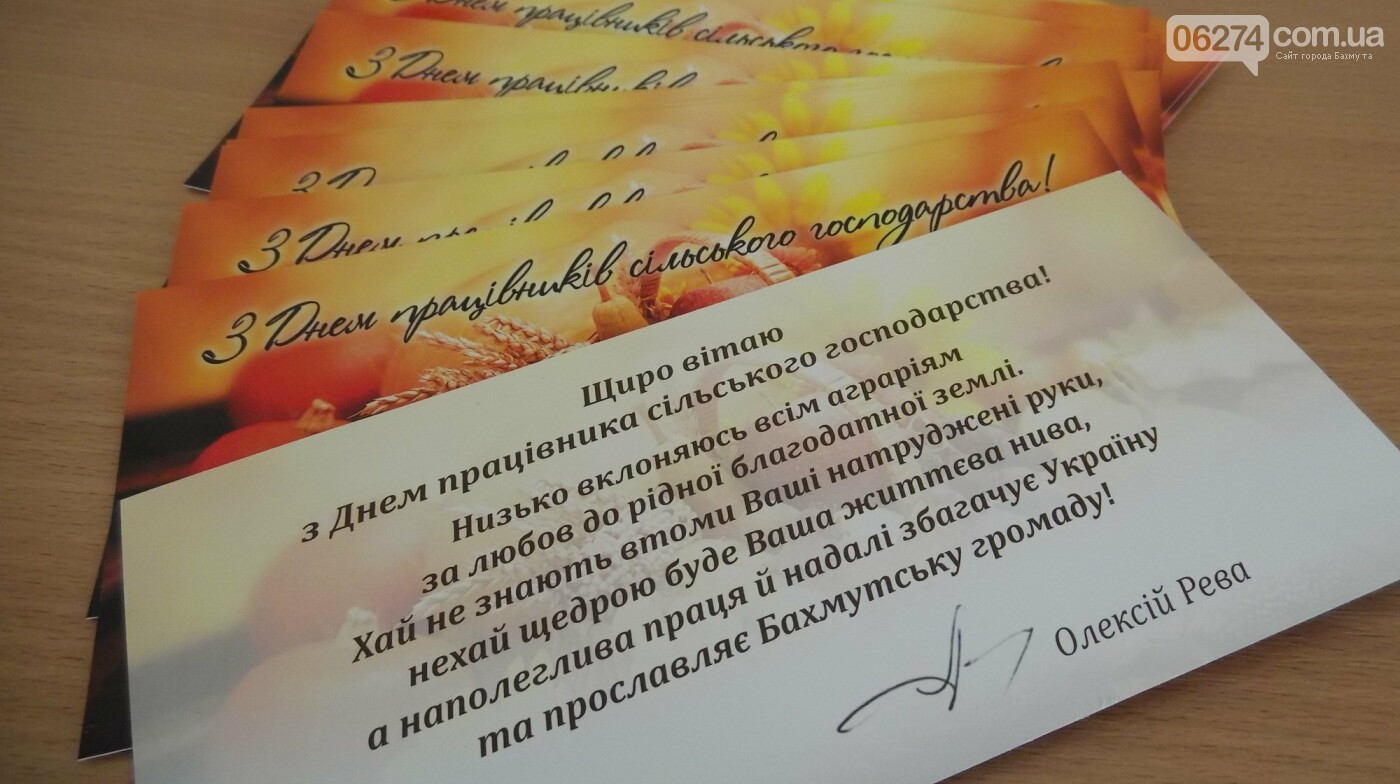 06274 com.ua
Сайт города Бахмута
Днем працівників сільського
З Днем працівників
З Д
З Днем
З Днем працівників сільського господарства!
Щиро вітаю
з Днем працівника сільського господарства!
Низько вклоняюсь всім аграріям
за любов до рідної благодатної землі.
Хай не знають втоми Ваші натруджені руки,
нехай щедрою буде Ваша життєва нива,
а наполеглива праця й надалі збагачує Україну
та прославляє Бахмутську громаду!
Олексій Рева